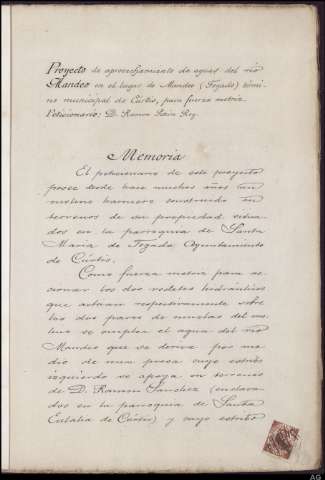 Proyecto de aprovechamiento de aguas del río
Mandeo en el lugar de Mandeo (Fogado) térmi-
no municipal de Curtis, para fuerza motriz.
Peticionario: D. Ramon Rey.
Memoria
El peticionario de este proyecto
posee desde hace muchos años un
molino harinero construido en
terrenos de su propiedad situa-
dos en la parroquia de Santa
Maria de Fogado Ayuntamiento
de Cúrtis.
Como fuerza motriz para ac-
cionar los dos rodetes hidráulicos
que actúan respectivamente sobre
los dos pares de muelas del mo-
lino se emplea el agua del río
Mandeo que se deriva por me-
dio de una presa cuyo estribo
izquierdo se apoya en terrenos
de D. Ramon Sanchez (enclava-
dos en la parroquia de Santa
Eulalia de Cúrtis) y cuyo estribo
AG